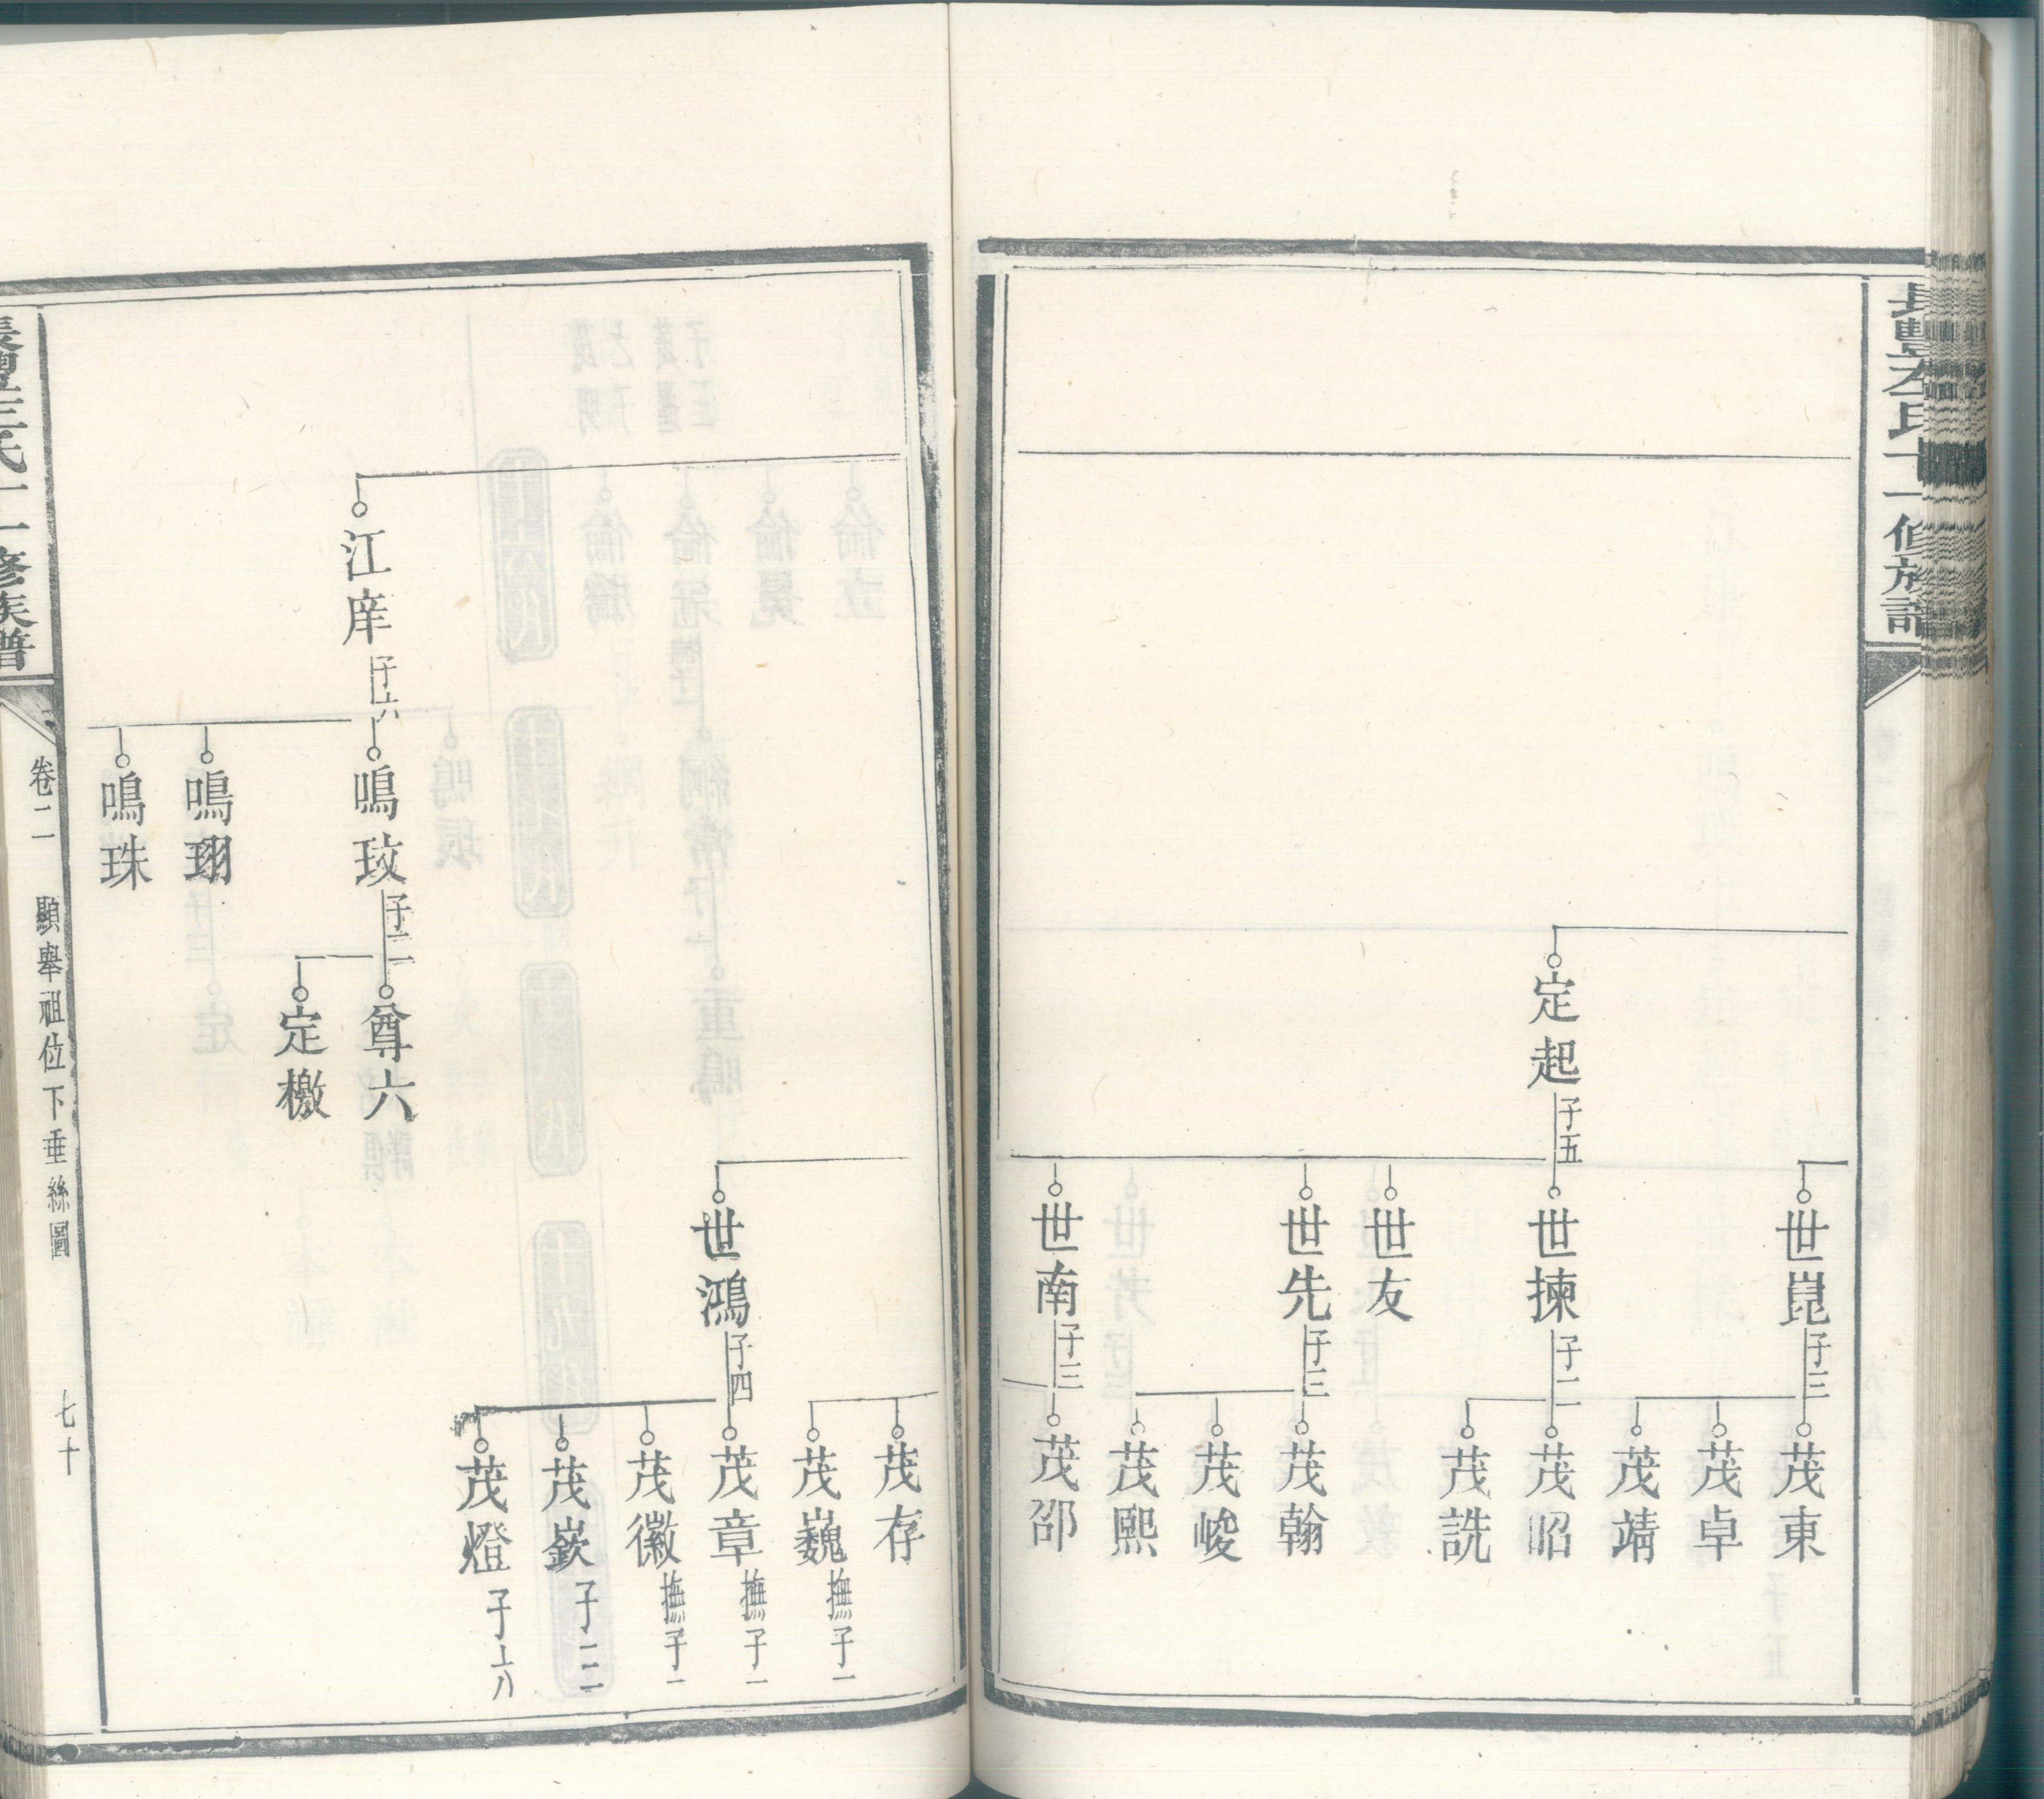 長豐左氏十一修族譜
定起
子五
世崑
子三
世揀
子二
世友
世先
子三
世南
子三
茂東
茂卓
茂靖
茂昭
茂詵
茂翰
茂峻
茂熙
茂邵
江庠
子六
鳴玫
子二
鳴珝
鳴珠
尊六
定檄
世鴻
子四
茂存
茂巍
撫子一
茂章
撫子一
茂徽
撫子一
茂嶔
子二
茂燈
卷二
顯舉祖位下垂絲圖
七十